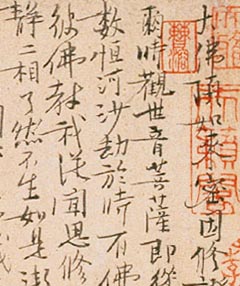 大佛頂如來密因修
爾時觀世音菩薩即從
數恒河沙劫於時有佛
彼佛教我從聞思修
靜二相了然不生如是漸